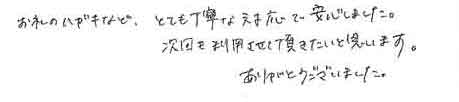 お礼のハガキなど、とても丁寧な対応で安心しました。
次回も利用させて頂きたいと思います。
ありがとうございました。